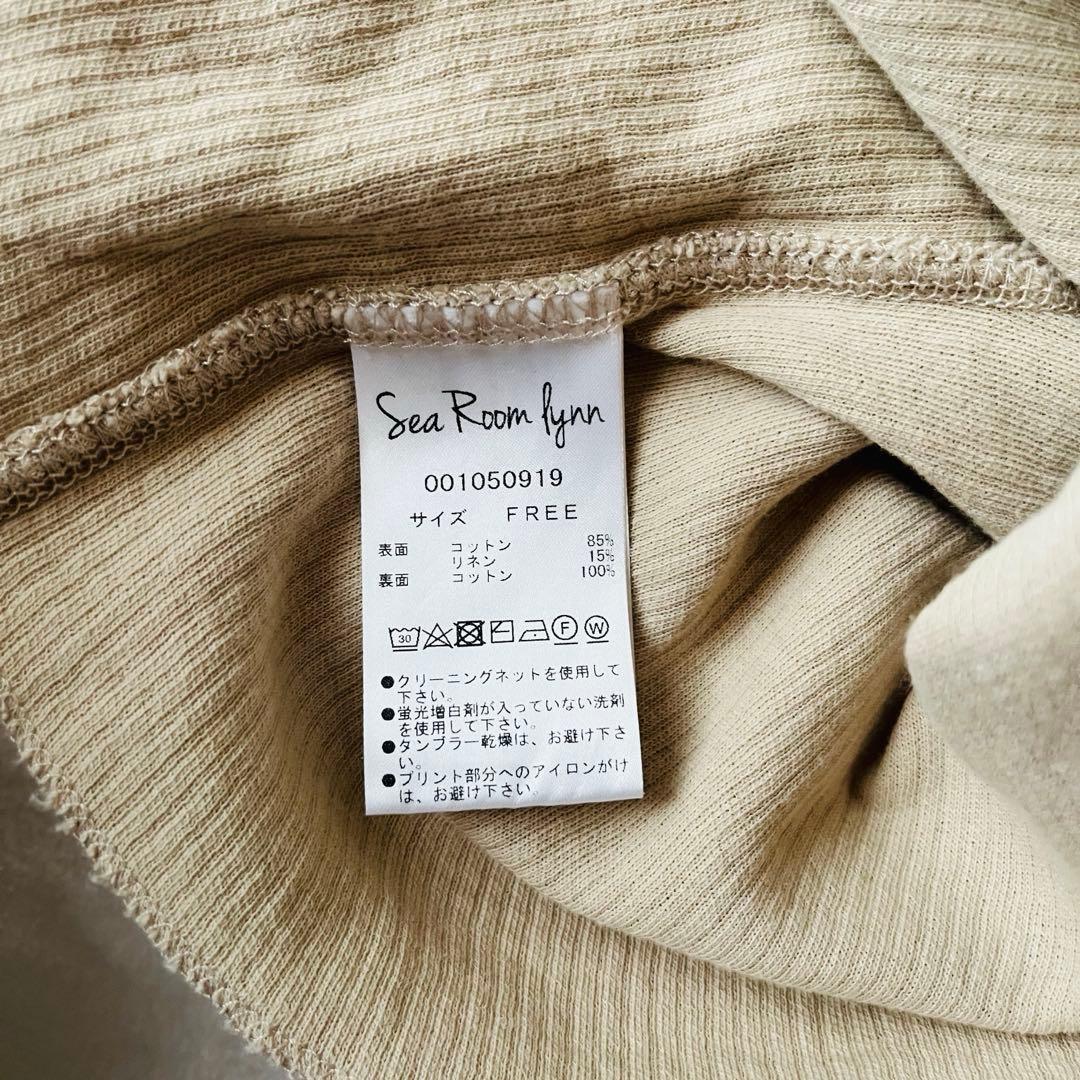 Sea Room lynn
001050919
サイズ FREE
表面 コットン 85%
リネン 15%
裏面 コットン 100%
30 F W
●クリーニングネットを使用して
下さい。
●蛍光増白剤が入っていない洗剤
を使用して下さい。
●タンブラー乾燥は、お避け下さ
い。
●プリント部分へのアイロンがけ
は、お避け下さい。